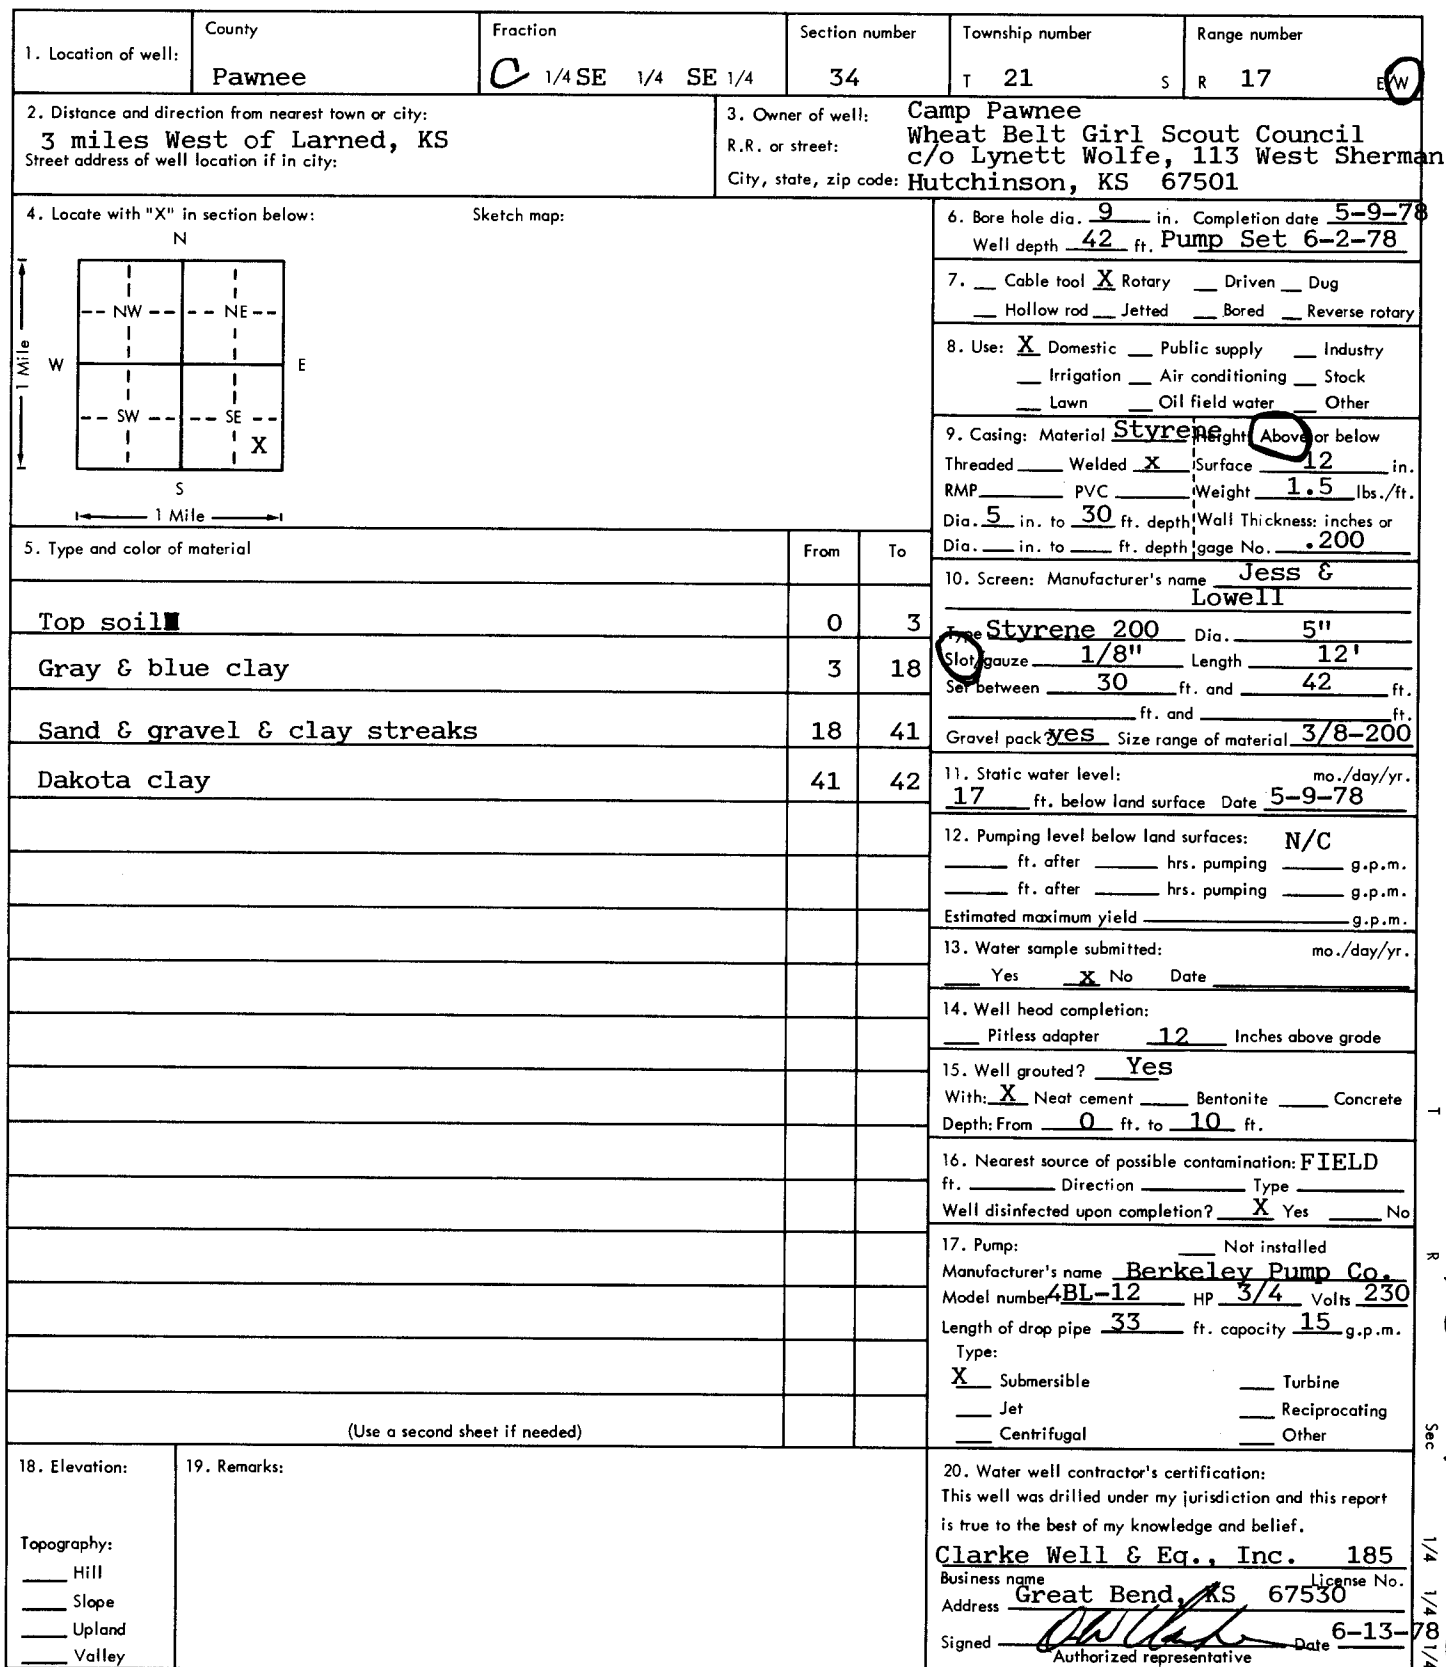 1. Location of well: County Pawnee Fraction C 1/4 SE 1/4 SE 1/4 Section number 34 Township number T 21 S Range number R 17 E/W
2. Distance and direction from nearest town or city:
3 miles West of Larned, KS
Street address of well location if in city:
3. Owner of well: Camp Pawnee
Wheat Belt Girl Scout Council
R.R. or street: c/o Lynett Wolfe, 113 West Sherman
City, state, zip code: Hutchinson, KS 67501
4. Locate with "X" in section below: Sketch map:
N
NW NE
W E
1 Mile
SW SE
X
S
1 Mile
5. Type and color of material From To
Top soil 0 3
Gray & blue clay 3 18
Sand & gravel & clay streaks 18 41
Dakota clay 41 42
(Use a second sheet if needed)
6. Bore hole dia. 9 in. Completion date 5-9-78
Well depth 42 ft. Pump Set 6-2-78
7. __ Cable tool X Rotary __ Driven __ Dug
__ Hollow rod __ Jetted __ Bored __ Reverse rotary
8. Use: X Domestic __ Public supply __ Industry
__ Irrigation __ Air conditioning __ Stock
__ Lawn __ Oil field water __ Other
9. Casing: Material Styrene Height: Above or below
Threaded ___ Welded X Surface 12 in.
RMP ___ PVC ___ Weight 1.5 lbs./ft.
Dia. 5 in. to 30 ft. depth Wall Thickness: inches or
Dia. ___ in. to ___ ft. depth gage No. .200
10. Screen: Manufacturer's name Jess &
Lowell
Type Styrene 200 Dia. 5"
Slot/gauze 1/8" Length 12'
Set between 30 ft. and 42 ft.
___ ft. and ___ ft.
Gravel pack? yes Size range of material 3/8-200
11. Static water level: mo./day/yr.
17 ft. below land surface Date 5-9-78
12. Pumping level below land surfaces: N/C
___ ft. after ___ hrs. pumping ___ g.p.m.
___ ft. after ___ hrs. pumping ___ g.p.m.
Estimated maximum yield ___ g.p.m.
13. Water sample submitted: mo./day/yr.
___ Yes X No Date ___
14. Well head completion:
___ Pitless adapter 12 Inches above grade
15. Well grouted? Yes
With: X Neat cement ___ Bentonite ___ Concrete
Depth: From 0 ft. to 10 ft.
16. Nearest source of possible contamination: FIELD
ft. ___ Direction ___ Type ___
Well disinfected upon completion? X Yes ___ No
17. Pump: ___ Not installed
Manufacturer's name Berkeley Pump Co.
Model number 4BL-12 HP 3/4 Volts 230
Length of drop pipe 33 ft. capacity 15 g.p.m.
Type:
X Submersible ___ Turbine
___ Jet ___ Reciprocating
___ Centrifugal ___ Other
18. Elevation:
Topography:
___ Hill
___ Slope
___ Upland
___ Valley
19. Remarks:
20. Water well contractor's certification:
This well was drilled under my jurisdiction and this report
is true to the best of my knowledge and belief.
Clarke Well & Eq., Inc. 185
Business name License No.
Address Great Bend, KS 67530
Signed Date 6-13-78
Authorized representative
T
R
Sec
1/4 1/4 1/4